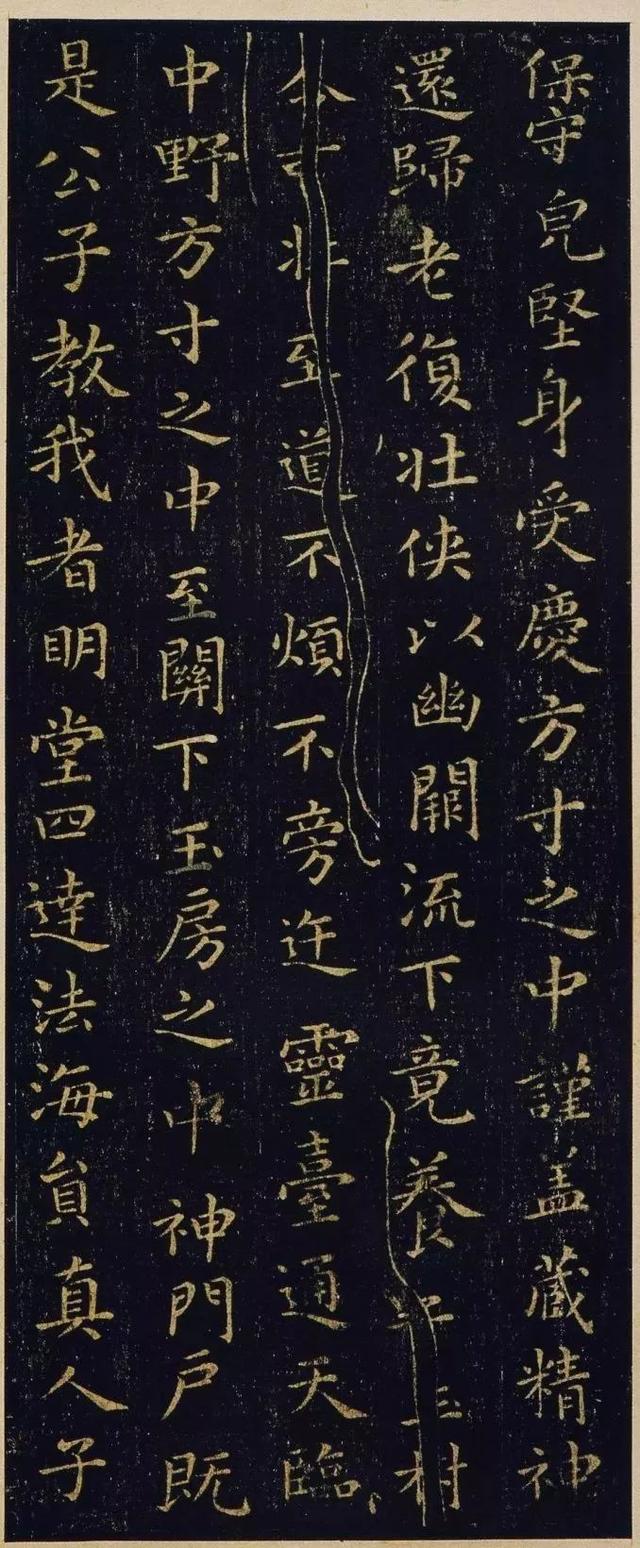 保守皃堅身受慶方寸之中謹盖藏精神
還歸老復壯俠以幽闕流下竟養子玉村
可壯至道不煩不旁迕靈臺通天臨
中野方寸之中至關下玉房之中神門戶既
是公子教我者明堂四達法海員真人子